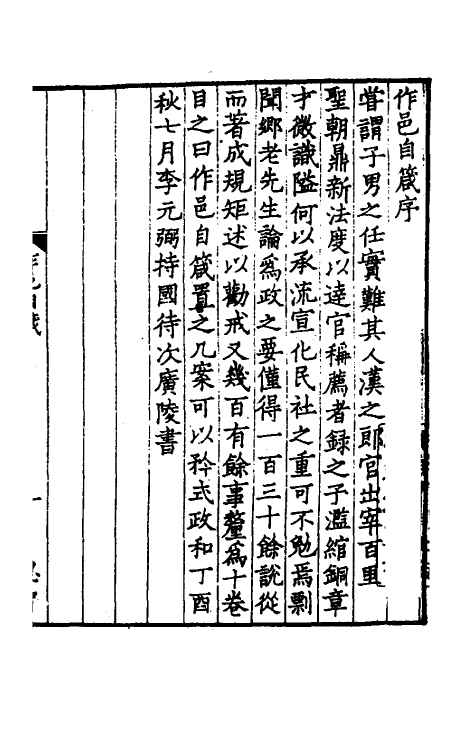 作邑自箴序
嘗謂子男之任實難其人漢之郎官出宰百里
聖朝鼎新法度以達官稱薦者録之子濫綰銅章
才微識隘何以承流宣化民社之重可不勉焉剽
聞鄉老先生論爲政之要僅得一百三十餘說從
而著成規矩述以勸戒又幾百有餘事釐爲十卷
目之曰作邑自箴置之几案可以矜式政和丁酉
秋七月李元弼持國待次廣陵書
作邑自箴
一